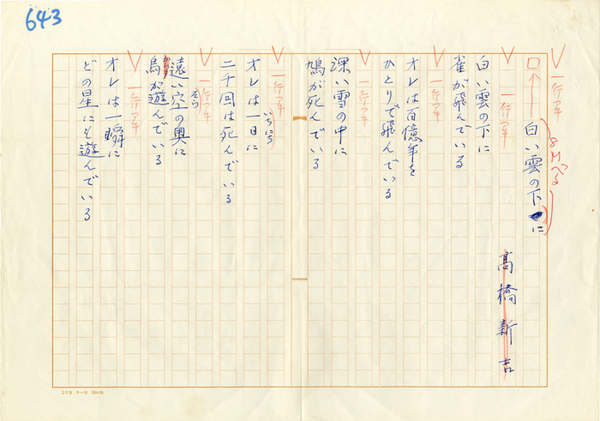 643
白い雲の下に
高橋新吉
一行アキ
白い雲の下に
雀が飛んでいる
一行アキ
オレは百億年を
ひとりで飛んでいる
一行アキ
深い雪の中に
鳩が死んでいる
一行アキ
オレは一日に
いちにち
二千回は死んでいる
一行アキ
遠い空の奥に
鳥が遊んでいる
一行アキ
オレは一瞬に
どの星にも遊んでいる